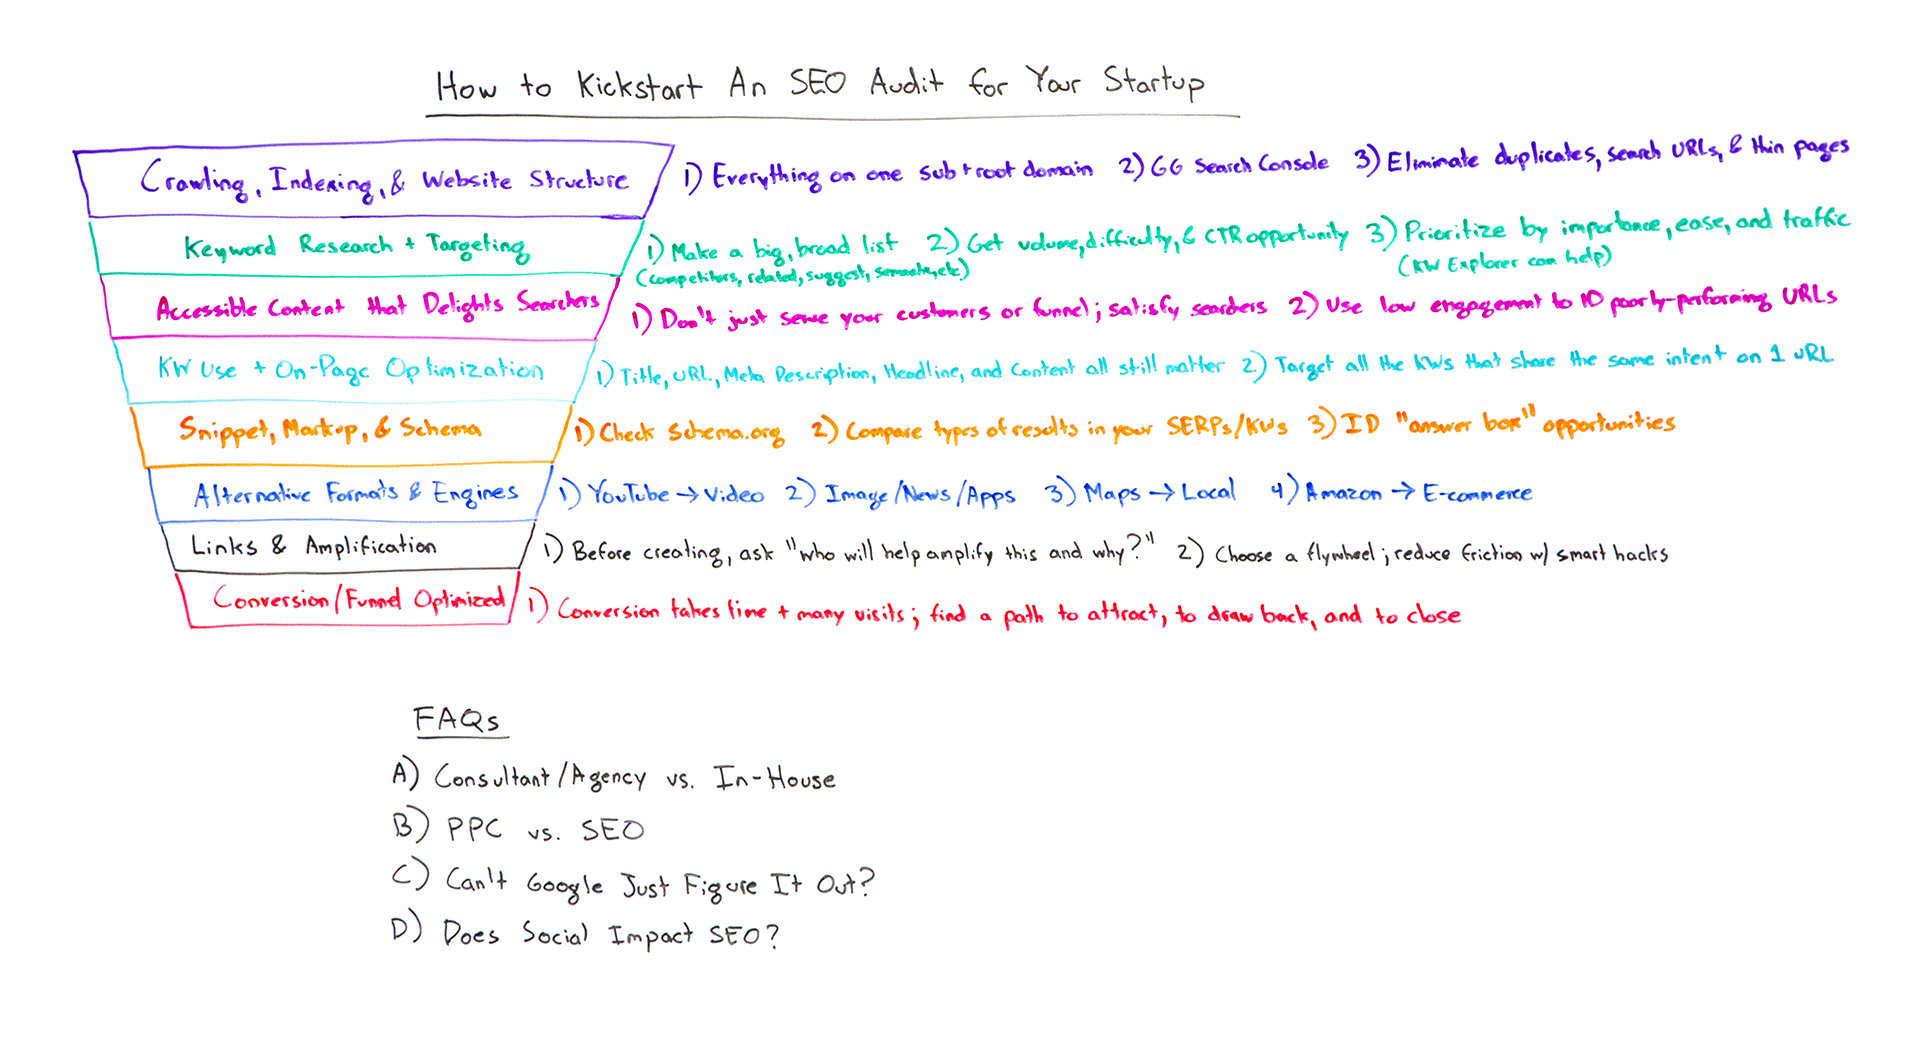 How to Kickstart An SEO Audit for Your Startup
Crawling, Indexing, & Website Structure
1) Everything on one sub + root domain 2) GG Search Console 3) Eliminate duplicates, search URLs, & thin pages
Keyword Research + Targeting
1) Make a big, broad list 2) Get volume, difficulty, & CTR opportunity 3) Prioritize by importance, ease, and traffic
(competitors, related, suggest, semantic, etc) (KW Explorer can help)
Accessible Content that Delights Searchers
1) Don't just serve your customers or funnel; satisfy searchers 2) Use low engagement to ID poorly-performing URLs
KW Use + On-Page Optimization
1) Title, URL, Meta Description, Headline, and Content all still matter 2) Target all the KWs that share the same intent on 1 URL
Snippet, Markup, & Schema
1) Check Schema.org 2) Compare types of results in your SERPs/KWs 3) ID "answer box" opportunities
Alternative Formats & Engines
1) YouTube → Video 2) Image/News/Apps 3) Maps → Local 4) Amazon → E-commerce
Links & Amplification
1) Before creating, ask "who will help amplify this and why?" 2) Choose a flywheel; reduce friction w/ smart hacks
Conversion/Funnel Optimized
1) Conversion takes time + many visits; find a path to attract, to draw back, and to close
FAQs
A) Consultant/Agency vs. In-House
B) PPC vs. SEO
C) Can't Google Just Figure It Out?
D) Does Social Impact SEO?